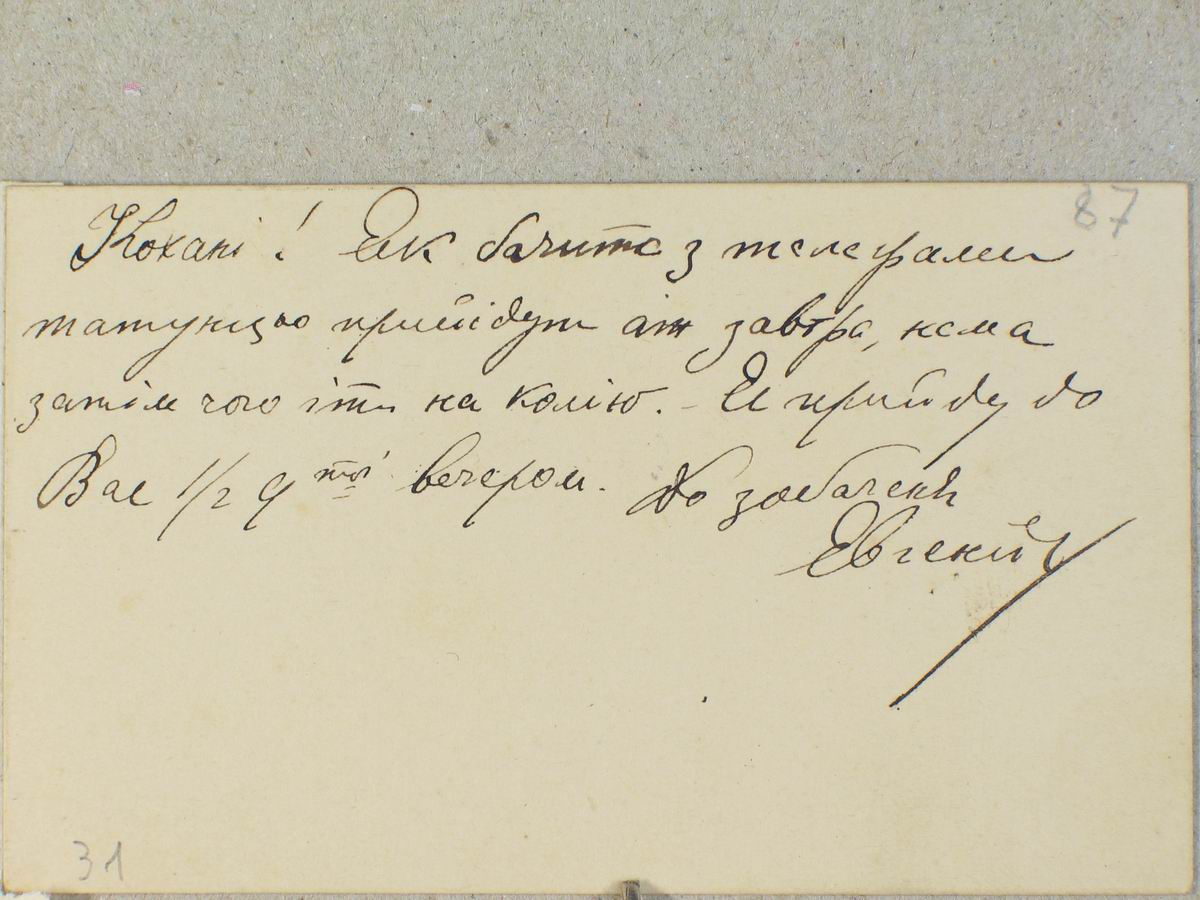 87
Кохані! Як бачите з телеграми
татунцьо приїдут аж завтра, нема
затім чого іти на колїю. – Я прийду до
Вас 1/2 9 тої вечером. До зобаченя
Евгений
31